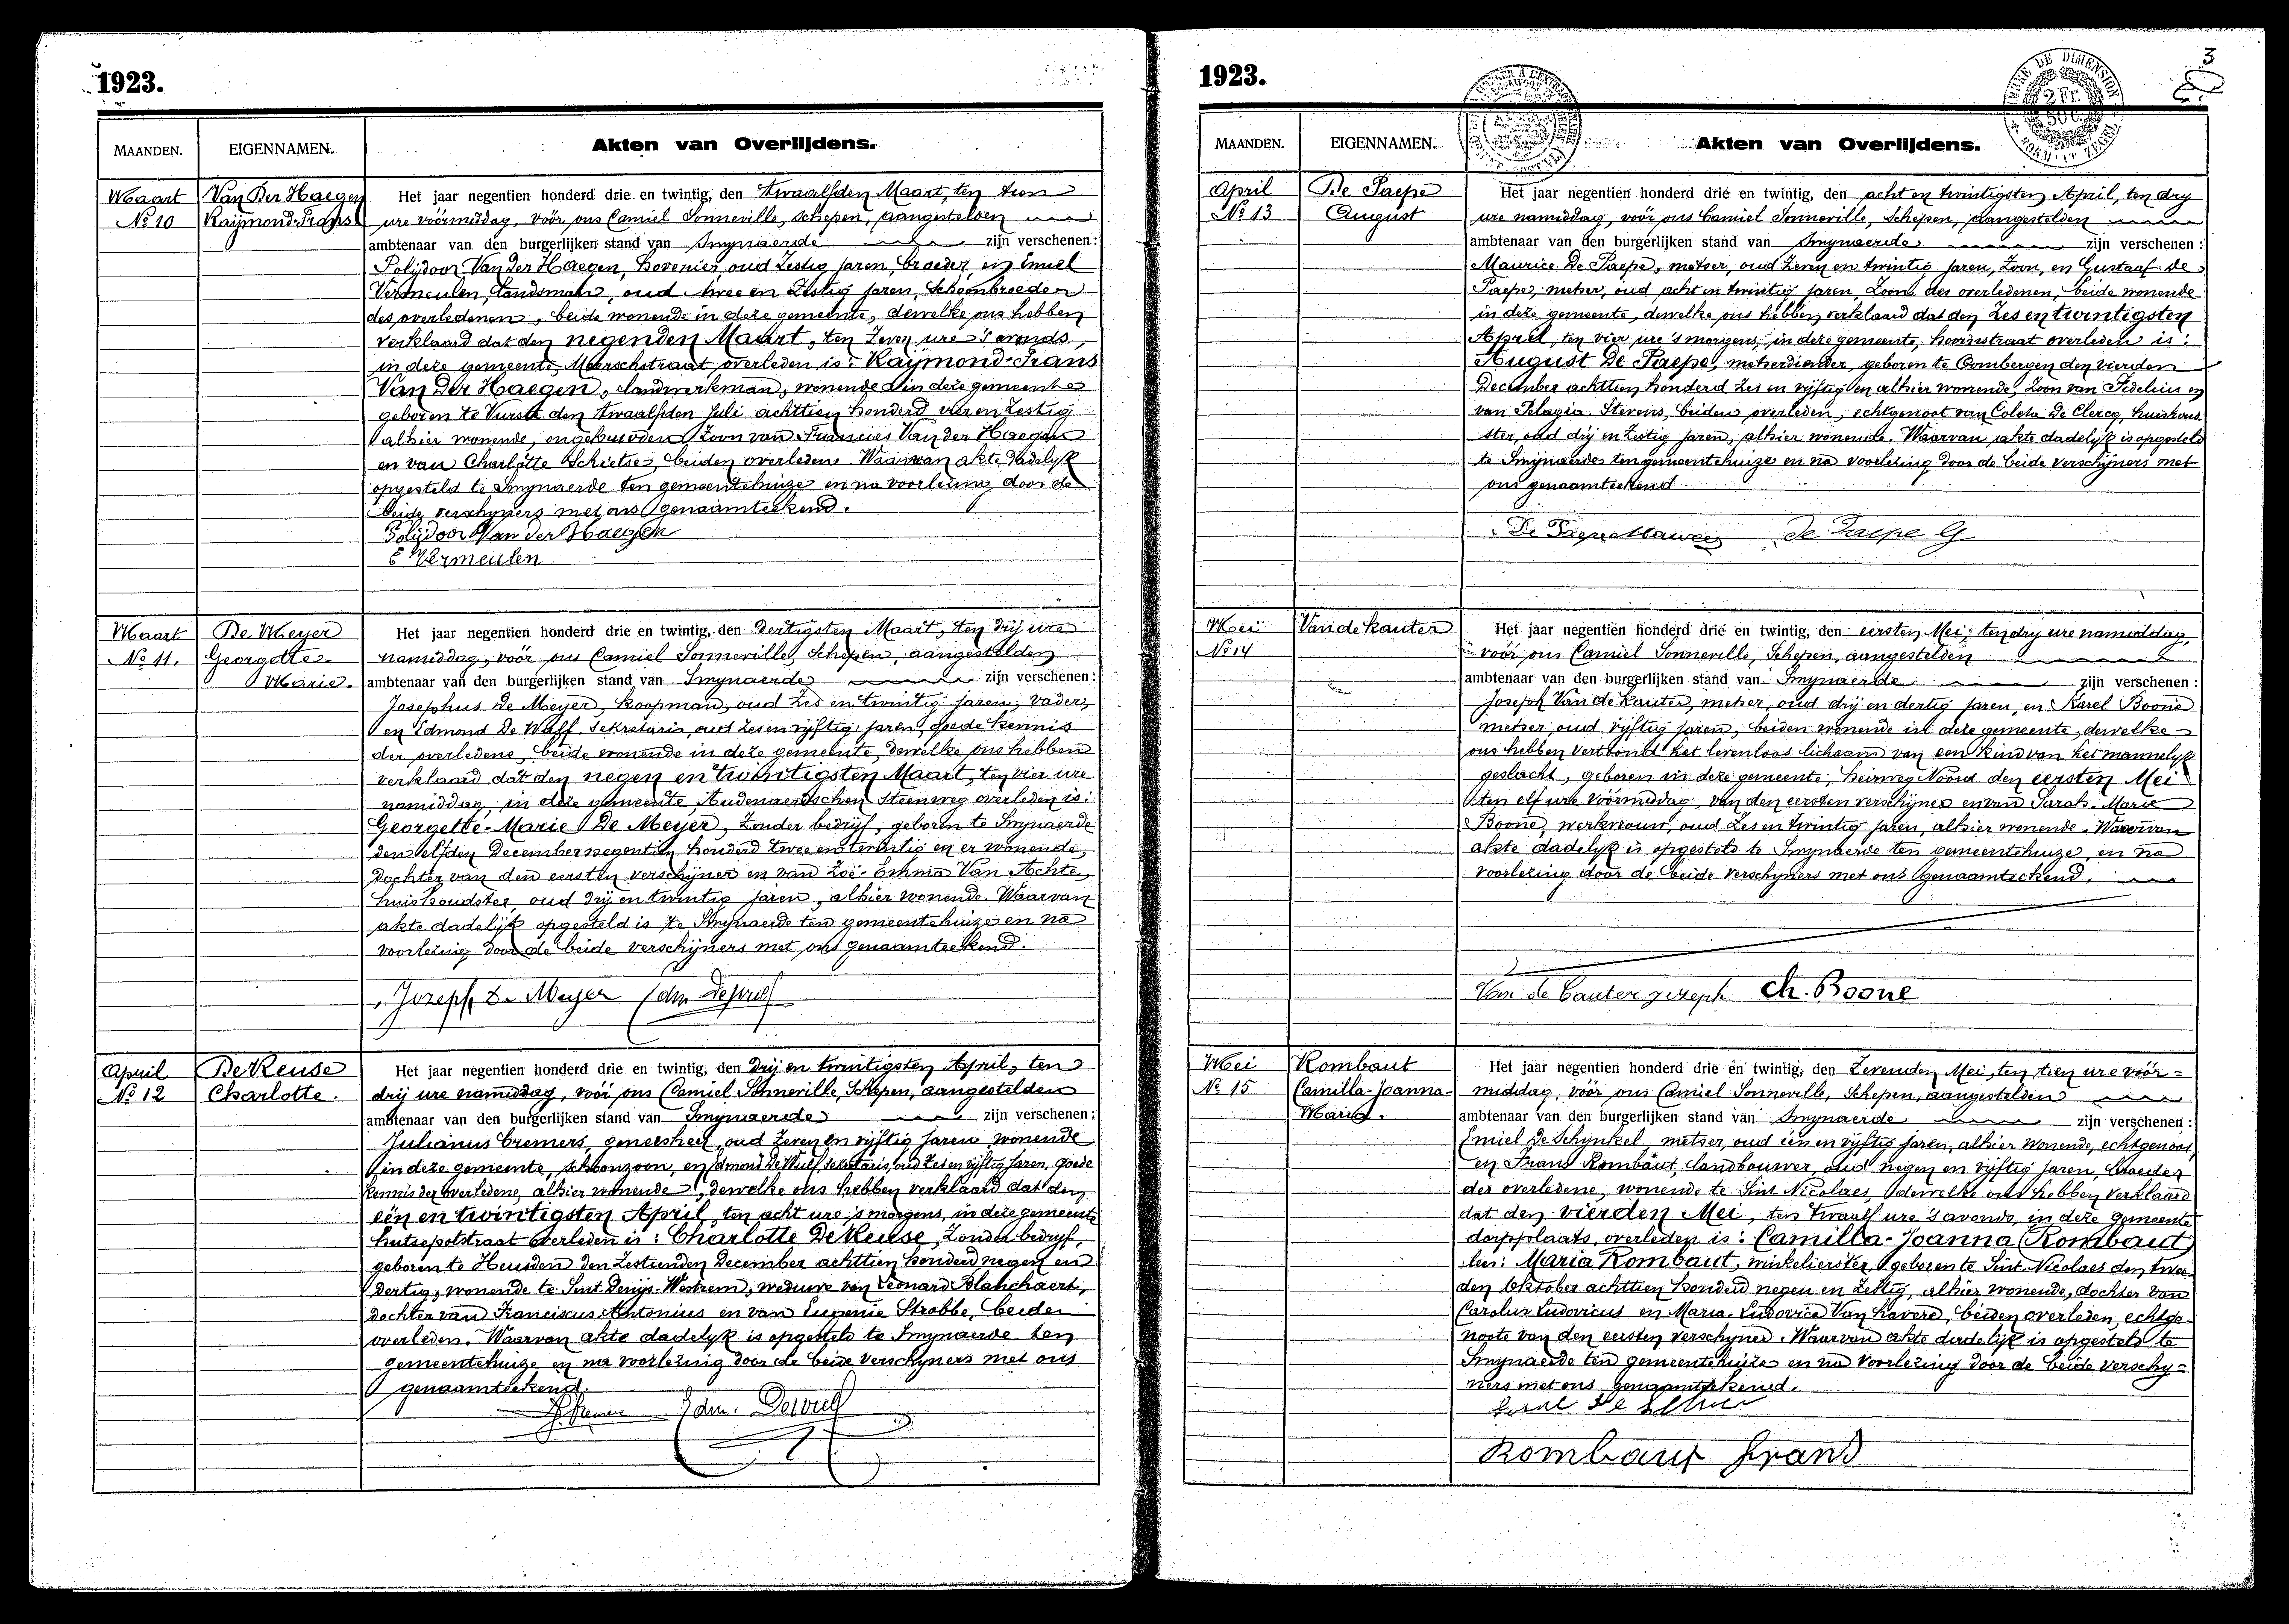 1923.
MAANDEN.
EIGENNAMEN.
Akten van Overlijdens.
Maart
No 10
Van Der Haegen
Raymond-Frans
Het jaar negentien honderd drie en twintig, den twaalfden Maart, ten tien
ure voormiddag, voor ons Camiel Sonneville, Schepen, aangestelden
ambtenaar van den burgerlijken stand van Smynaerde zijn verschenen:
Polijdoor Van der Haegen, hovenier, oud zestig jaren, broeder, en Emiel
Vermeulen, landsman, oud twee en zestig jaren, schoonbroeder
des overledenen, beide wonende in deze gemeente, dewelke ons hebben
verklaard dat den negenden Maart, ten zeven ure 's avonds,
in deze gemeente, Meerschstraat overleden is: Raymond-Frans
Van Der Haegen, landwerkman, wonende in deze gemeente
geboren te Vurste den twaalfden Juli achttien honderd vier en zestig
alhier wonende, ongehuwden zoon van Francies Van der Haegen
en van Charlotte Schietse, beiden overleden. Waarvan akte dadelyk
opgesteld te Smynaerde ten gemeentehuize en na voorlezing door de
beide verschyners met ons genaamteekend.
Polijdoor Van der Haegen
E Vermeulen
Maart
No 11.
De Meyer
Georgette-
Marie.
Het jaar negentien honderd drie en twintig, den dertigsten Maart, ten drij ure
namiddag, voor ons Camiel Sonneville, Schepen, aangestelden
ambtenaar van den burgerlijken stand van Smynaerde zijn verschenen:
Josephus De Meyer, koopman, oud zes en twintig jaren, vader,
en Edmond De Wulf, Sekretaris, oud zes en vyftig jaren, goede kennis
der overledene, beide wonende in deze gemeente, dewelke ons hebben
verklaard dat den negen en twintigsten Maart, ten vier ure
namiddag, in deze gemeente, Audenaerdschen Steenweg overleden is:
Georgette-Marie De Meyer, zonder bedrijf, geboren te Smynaerde
den elfden December negentien honderd twee en twintig en er wonende,
dochter van den eersten verschijner en van Zoë-Emma Van Achte,
huishoudster, oud drij en twintig jaren, alhier wonende. Waarvan
akte dadelijk opgesteld is te Smynaerde ten gemeentehuize en na
voorlezing door de beide verschijners met ons genaamteekend.
Jozeph De Meyer Edm. Dewulf
April
No 12
De Keuse
Charlotte.
Het jaar negentien honderd drie en twintig, den drij en twintigsten April, ten
drij ure namiddag, voor ons Camiel Sonneville, Schepen, aangestelden
ambtenaar van den burgerlijken stand van Smynaerde zijn verschenen:
Julianus Cremers, geneesheer, oud zeven en vyftig jaren wonende
in deze gemeente, schoonzoon, en Edmond De Wulf, sekretaris, oud zes en vyftig jaren, goede
kennis der overledene, alhier wonende, dewelke ons hebben verklaard dat den
eën en twintigsten April, ten acht ure 's morgens, in deze gemeente
Hutsepotstraat overleden is: Charlotte De Keuse, zonder bedryf,
geboren te Heusden den zestienden December achttien honderd negen en
dertig, wonende te Sint Denijs-Westrem, weduwe van Leonard Blanchaert,
dochter van Franciscus Antonius en van Eugenie Strobbe, beiden
overleden. Waarvan akte dadelyk is opgesteld te Smynaerde ten
gemeentehuize en na voorlezing door de beide verschyners met ons
genaamteekend.
Edm. Dewulf
3
1923.
TIMBRE DE DIMENSION
MAANDEN.
EIGENNAMEN.
Akten van Overlijdens.
April
No 13
De Paepe
August
Het jaar negentien honderd drie en twintig, den acht en twintigsten April, ten dry
ure namiddag, voor ons Camiel Sonneville, Schepen, aangestelden
ambtenaar van den burgerlijken stand van Smynaerde zijn verschenen:
Maurice De Paepe, metser, oud zeven en twintig jaren, zoon, en Gustaaf De
Paepe, metser, oud acht en twintig jaren, zoon des overledenen, beide wonende
in deze gemeente, dewelke ons hebben verklaard dat den zes en twintigsten
April, ten vier ure 's morgens, in deze gemeente, overleden is:
August De Paepe, metserdiender, geboren te Oombergen den vierden
December achttien honderd zes en vyftig en alhier wonende, zoon van Fidelius en
van Pelagia Stevens, beiden overleden, echtgenoot van Coleta De Clercq, huishoud-
ster, oud drij en zestig jaren, alhier wonende. Waarvan akte dadelyk is opgesteld
te Smijnaerde ten gemeentehuize en na voorlezing door de beide verschijners met
ons genaamteekend.
De Paepe Maurice De Paepe G
Mei
No 14
Van de kauter
Het jaar negentien honderd drie en twintig, den eersten Mei, ten dry ure namiddag,
voor ons Camiel Sonneville, Schepen, aangestelden
ambtenaar van den burgerlijken stand van Smynaerde zijn verschenen:
Joseph Van de kauter, metser, oud drij en dertig jaren, en Karel Boone
metser, oud vyftig jaren, beiden wonende in deze gemeente, dewelke
ons hebben vertoond het levenloos lichaam van een kind van het mannelyk
geslacht, geboren in deze gemeente, Heirweg Noord den eersten Mei
ten elf ure voormiddag, van den eersten verschijner en van Sarah-Marie
Boone, werkvrouw, oud zes en twintig jaren, alhier wonende. Waarvan
akte dadelyk is opgesteld te Smynaerde ten gemeentehuize, en na
voorlezing door de beide verschyners met ons genaamteekend.
Van de Cauter jozeph Ch. Boone
Mei
No 15
Rombaut
Camilla-Joanna-
Maria.
Het jaar negentien honderd drie en twintig, den zevenden Mei, ten tien ure voor=
middag, voor ons Camiel Sonneville, Schepen, aangestelden
ambtenaar van den burgerlijken stand van Smynaerde zijn verschenen:
Emiel De Schynkel, metser, oud een en vyftig jaren, alhier wonende, echtgenoot,
en Frans Rombaut, landbouwer, oud negen en vyftig jaren, broeder
der overledene, wonende te Sint Nicolaes, dewelke ons hebben verklaard
dat den vierden Mei, ten twaalf ure 's avonds, in deze gemeente
dorpplaats, overleden is: Camilla-Joanna (Rombaut)
Maria Rombaut, winkelierster, geboren te Sint-Nicolaes den twee-
den Oktober achttien honderd negen en zestig, alhier wonende, dochter van
Carolus Ludovicus en Maria-Ludovica Van Havere, beiden overleden, echtge-
noote van den eersten verschyner. Waarvan akte dadelijk is opgesteld te
Smynaerde ten gemeentehuize en na voorlezing door de beide verschy=
ners met ons genaamteekend.
Rombaut Frans